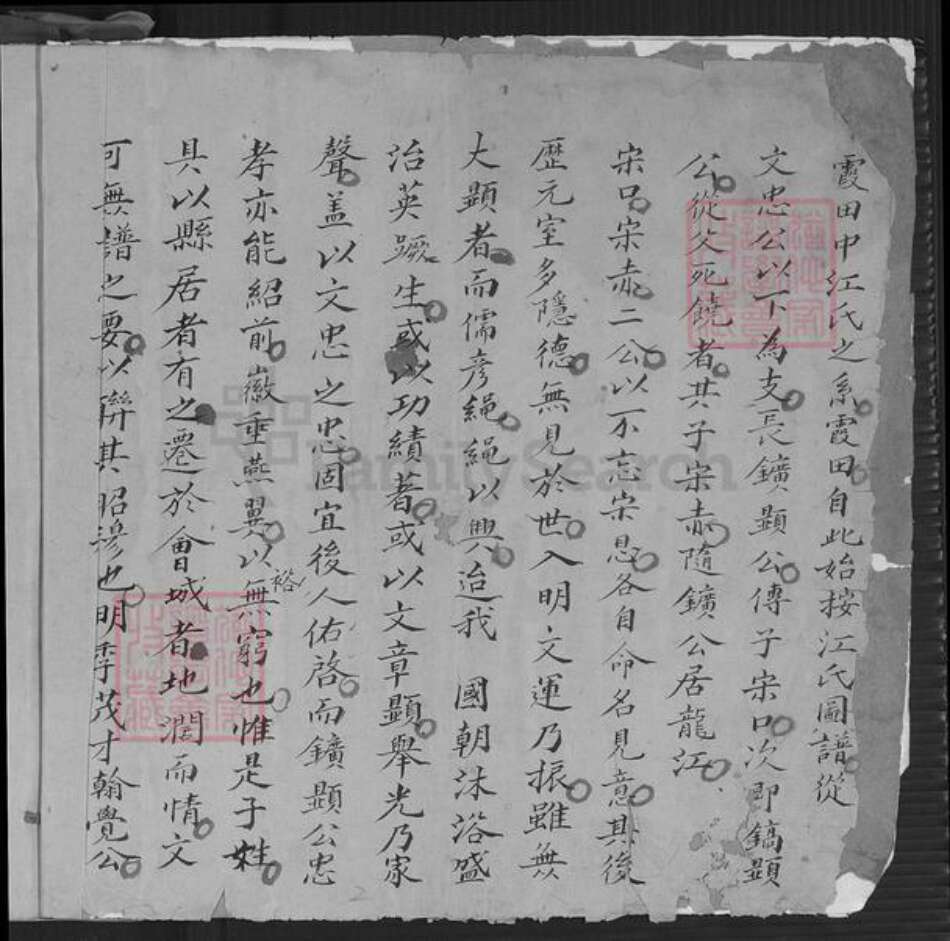 霞田中江氏之系霞田自此始按江氏圖譜從
文忠公以下為支長鑛顯公傳子宋口次即鎬顯
公從父死饒者其子宋赤隨鑛公居龍江
宋口宋赤二公以不忘宋恩各自命名見意其後
歷元室多隱德無見於世入明文運乃振雖無
大顯者而儒彥繩繩以興迨我 國朝沐浴盛
治英蹶生或以功績著或以文章顯舉光乃家
聲盖以文忠之忠固宜後人佑啓而鑛顯公忠
孝亦能紹前徽垂燕翼以裕無窮也惟是子姓
具以縣居者有之遷於會城者地濶而情文
可無譜之要以聨其昭穆也明季茂才翰覺公
FamilySearch